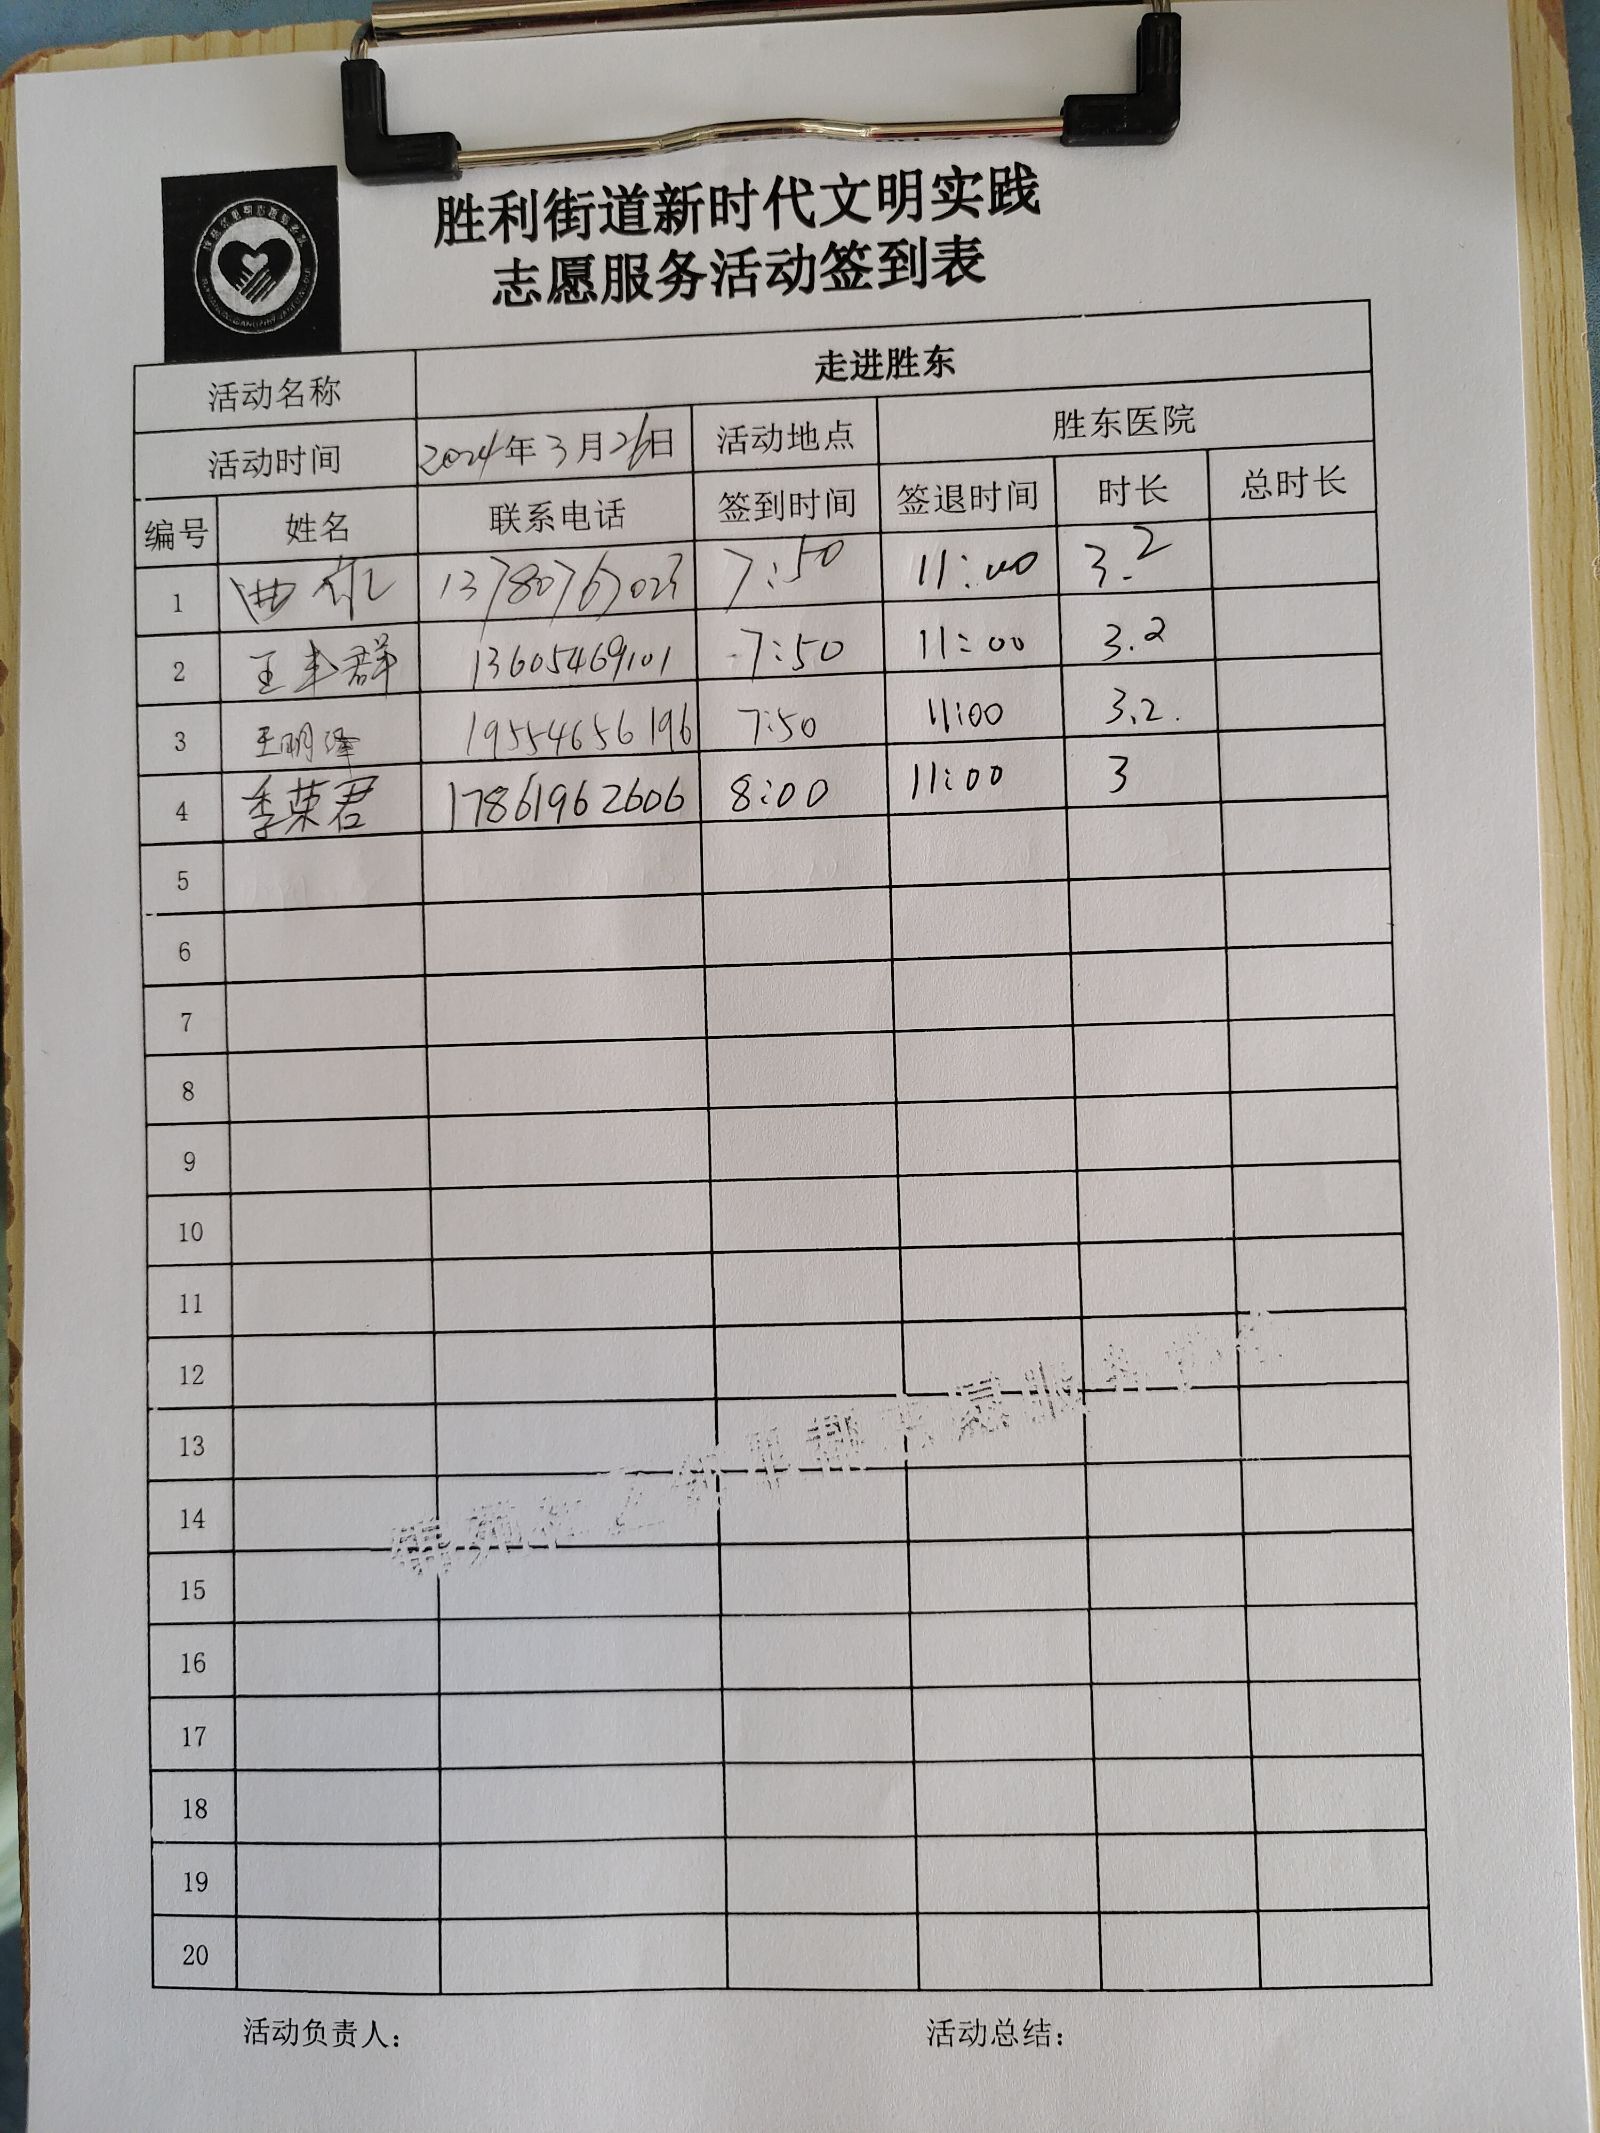 胜利街道新时代文明实践
志愿服务活动签到表
活动名称 走进胜东
活动时间 2024年3月26日 活动地点 胜东医院
编号 姓名 联系电话 签到时间 签退时间 时长 总时长
1 13780767023 7:50 11:00 3.2
2 王丰群 13605469101 7:50 11:00 3.2
3 王明泽 19554656196 7:50 11:00 3.2.
4 季荣君 17861962606 8:00 11:00 3
5
6
7
8
9
10
11
12
13
14
15
16
17
18
19
20
活动负责人: 活动总结: